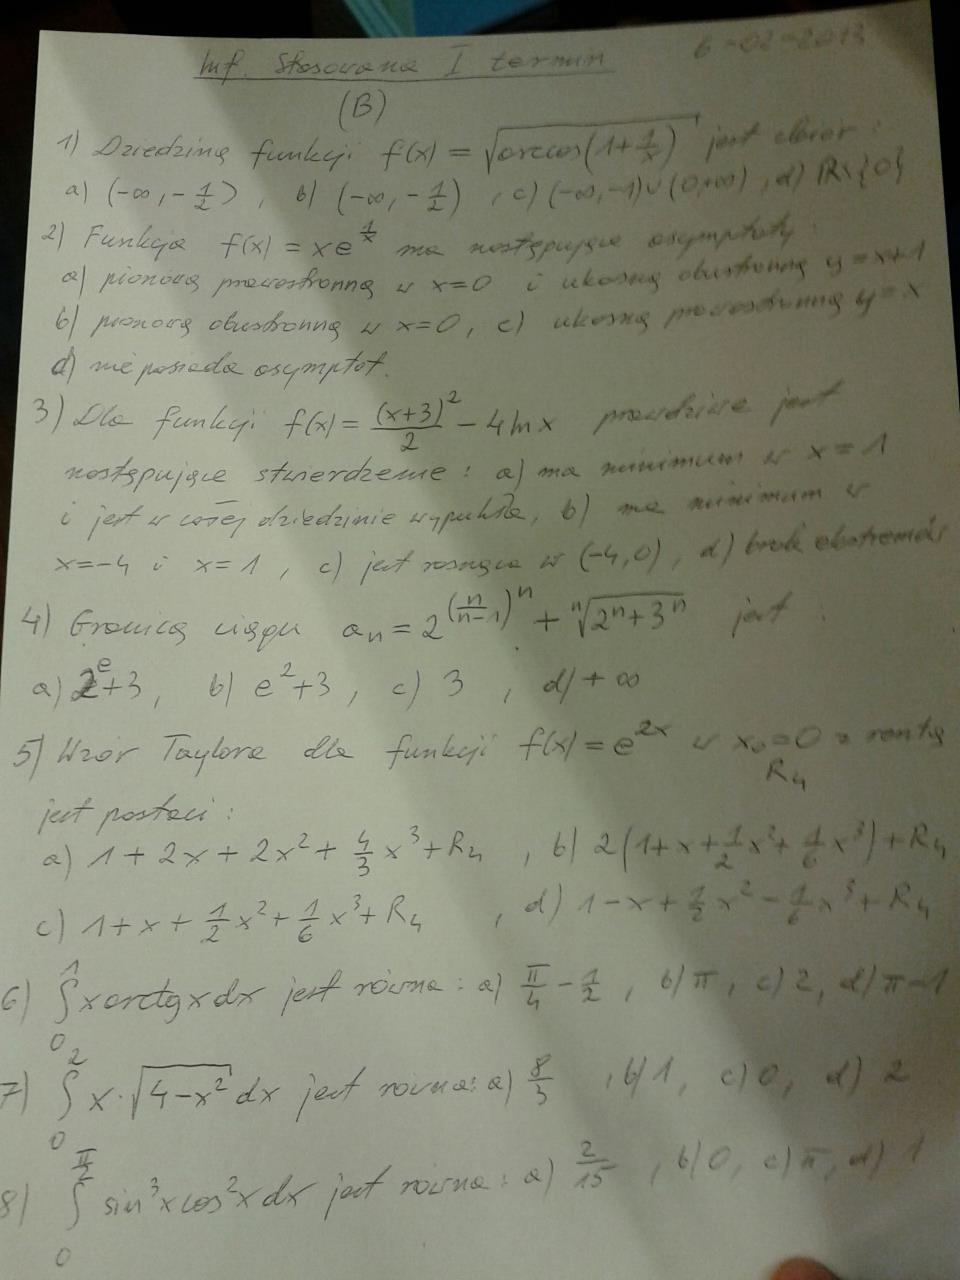 Inf. Stosowana I termin 6-02-2013
(B)
1) Dziedziną funkcji f(x) = √(arccos(1+1/x)) jest zbiór:
a) (-∞, -1/2>, b) (-∞, -1/2), c) (-∞, -1)∪(0,+∞), d) ℝ\{0}
2) Funkcja f(x) = xe^(1/x) ma następujące asymptoty:
a) pionową prawostronną w x=0 i ukośną obustronną y=x+1
b) pionową obustronną w x=0, c) ukośną prawostronną y=x
d) nie posiada asymptot.
3) Dla funkcji f(x) = (x+3)²/2 - 4lnx prawdziwe jest
następujące stwierdzenie: a) ma minimum w x=1
i jest w całej dziedzinie wypukła, b) ma minimum w
x=-4 i x=1, c) jest rosnąca w (-4,0), d) brak ekstremów
4) Granicą ciągu aₙ = 2^((n/(n-1))^n) + ⁿ√(2ⁿ+3ⁿ) jest:
a) 2^e+3, b) e²+3, c) 3, d) +∞
5) Wzór Taylora dla funkcji f(x) = e^(2x) w x₀=0 z resztą
R₄
jest postaci:
a) 1+2x+2x²+4/3x³+R₄, b) 2(1+x+1/2x²+1/6x³)+R₄
c) 1+x+1/2x²+1/6x³+R₄, d) 1-x+1/2x²-1/6x³+R₄
6) ∫₀¹ x arctg x dx jest równa: a) π/4 - 1/2, b) π, c) 2, d) π-1
7) ∫₀² x·√(4-x²) dx jest równa: a) 8/3, b) 1, c) 0, d) 2
8) ∫₀^(π/2) sin³x cos²x dx jest równa: a) 2/15, b) 0, c) π, d) 1